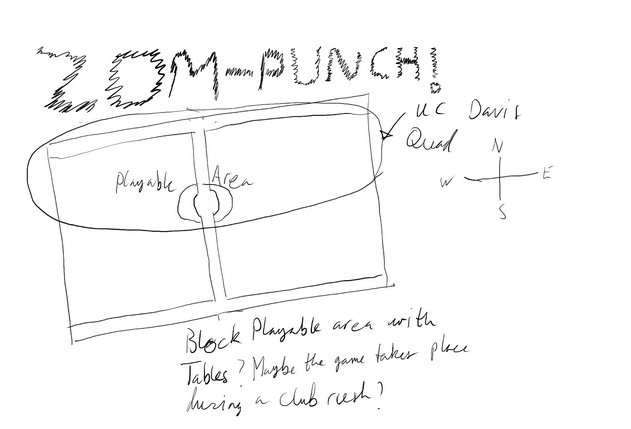 ZOM-PUNCH!
UC Davis
Quad
N
W E
S
Playable Area
Block Playable area with
Tables? Maybe the game takes place
during a club rush?